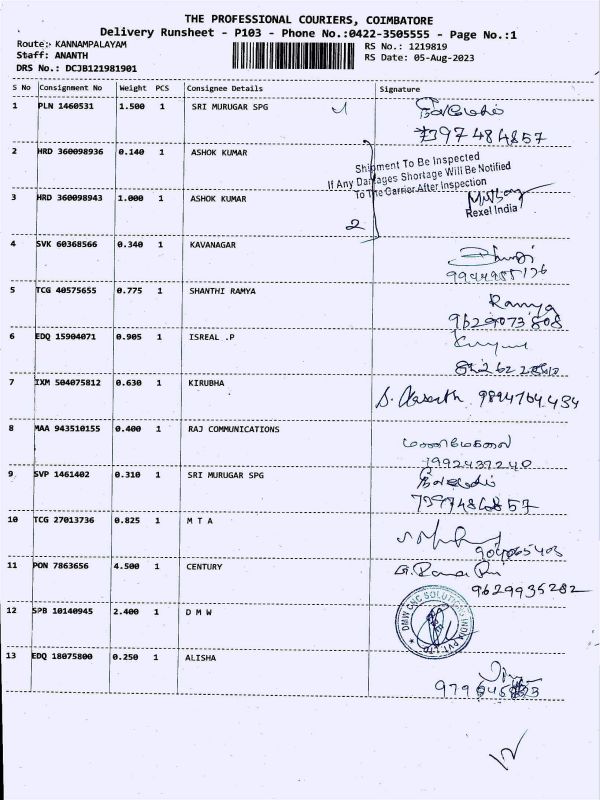 THE PROFESSIONAL COURIERS, COIMBATORE
Delivery Runsheet - P103 - Phone No.:0422-3505555 - Page No.:1
Route:- KANNAMPALAYAM
RS No.: 1219819
Staff: ANANTH
RS Date: 05-Aug-2023
DRS No.: DCJB121981901
S No Consignment No Weight PCS Consignee Details Signature
1 PLN 1460531 1.500 1 SRI MURUGAR SPG
7397484857
2 HRD 360098936 0.140 1 ASHOK KUMAR
Shipment To Be Inspected
If Any Damages Shortage Will Be Notified
To The Carrier After Inspection
3 HRD 360098943 1.000 1 ASHOK KUMAR
Rexel India
2
4 SVK 60368566 0.340 1 KAVANAGAR
5 TCG 40575655 0.775 1 SHANTHI RAMYA
Ramya
9629073808
6 EDQ 15904071 0.905 1 ISREAL .P
7 IXM 504075812 0.630 1 KIRUBHA
9894764434
8 MAA 943510155 0.400 1 RAJ COMMUNICATIONS
மணிமேகலை
7992437240
9 SVP 1461402 0.310 1 SRI MURUGAR SPG
10 TCG 27013736 0.825 1 M T A
11 PON 7863656 4.500 1 CENTURY
9629935282
12 SPB 10140945 2.400 1 D M W
DMW CNC SOLUTIONS INDIA PVT. LTD
13 EDQ 18075800 0.250 1 ALISHA